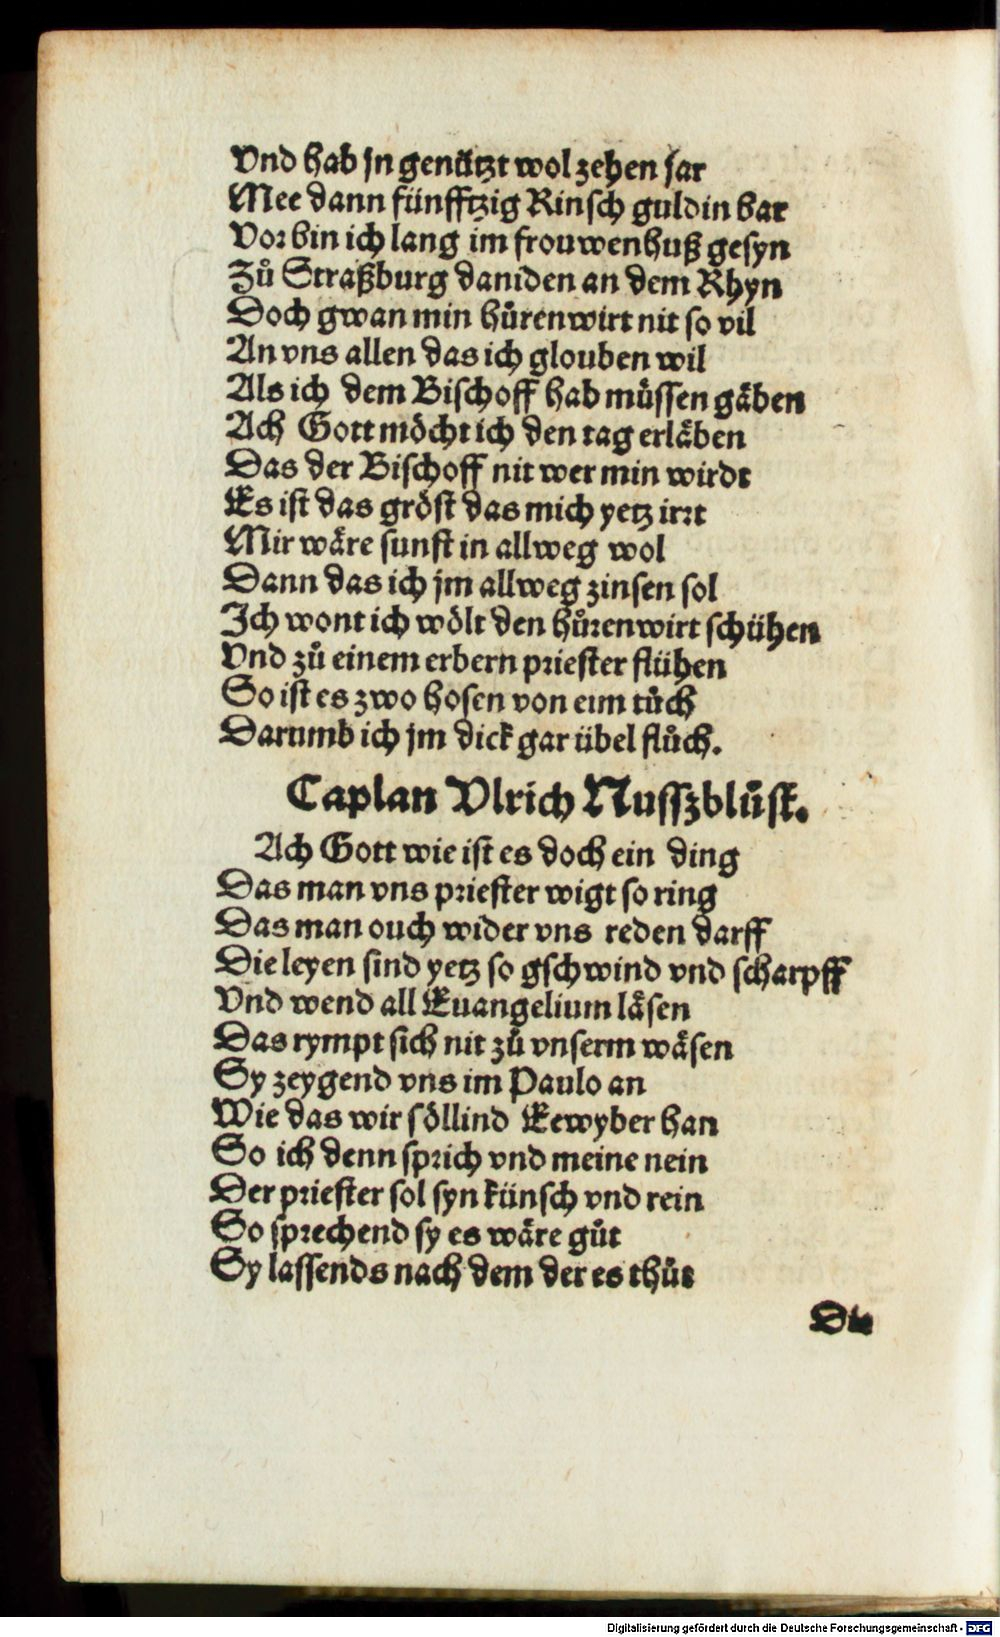 Vnd hab jn genützt wol zehen jar
Mee dann fünfftzig Rinsch guldin bar
Vor bin ich lang im frouwenhuß gesyn
Zů Straßburg daniden an dem Rhyn
Doch gwan min hůrenwirt nit so vil
An vns allen das ich glouben wil
Als ich dem Bischoff hab müssen gäben
Ach Gott möcht ich den tag erläben
Das der Bischoff nit wer min wirdt
Es ist das gröst das mich yetz irrt
Mir wäre sunst in allweg wol
Dann das ich jm allweg zinsen sol
Ich wont ich wölt den hůrenwirt schühen
Vnd zů einem erbern priester flühen
So ist es zwo hosen von eim tůch
Darumb ich jm dick gar übel flůch.
Caplan Vlrich Nusszblůst.
Ach Gott wie ist es doch ein ding
Das man vns priester wigt so ring
Das man ouch wider vns reden darff
Die leyen sind yetz so gschwind vnd scharpff
Vnd wend all Euangelium läsen
Das rympt sich nit zů vnserm wäsen
Sy zeygend vns im Paulo an
Wie das wir söllind Eewyber han
So ich denn sprich vnd meine nein
Der priester sol syn künsch vnd rein
So sprechend sy es wäre gůt
Sy lassends nach dem der es thůt
Die
Digitalisierung gefördert durch die Deutsche Forschungsgemeinschaft - DFG